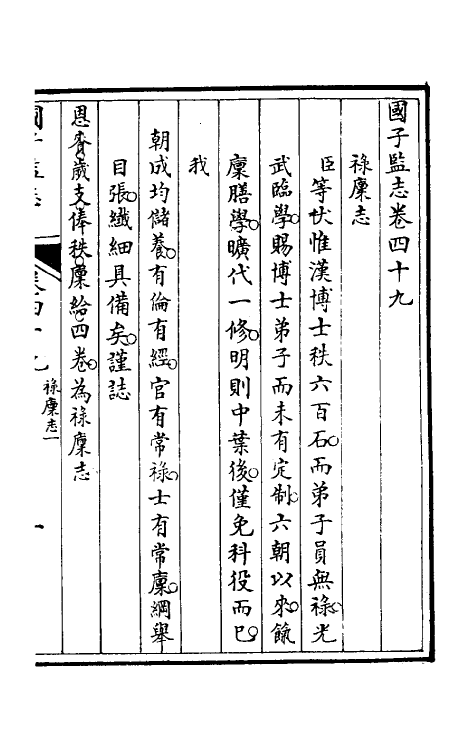 國子監志卷四十九
祿廩志
臣等伏惟漢博士秩六百石而弟子員無祿光
武臨學賜博士弟子而未有定制六朝以來餼
廩膳學曠代一修明則中葉後僅免科役而已
我
朝成均儲養有倫有經官有常祿士有常廩綱舉
目張纖細具備矣謹誌
恩賚歲支俸秩廩給四卷為祿廩志
國子監志 卷四十九 祿廩志一 一